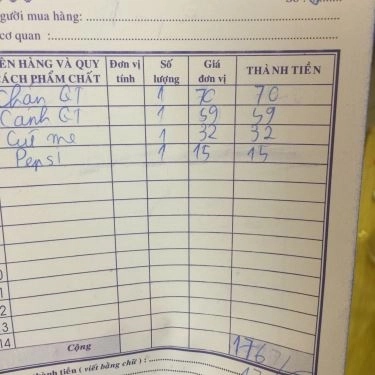 gười mua hàng:
cơ quan :
ÊN HÀNG VÀ QUY ÁCH PHẨM CHẤT Đơn vị tính Số lượng Giá đơn vị THÀNH TIỀN
Chân GT 1 70 70
Canh GT 1 59 59
Cút me 1 32 32
Pepsi 1 15 15
1
2
3
14 Cộng 176
hành tiền ( viết bằng chữ ) :